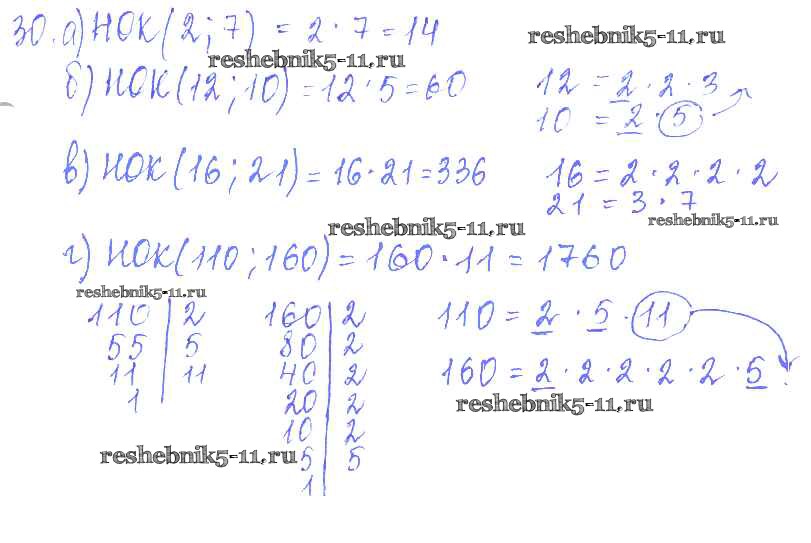 30. а) НОК(2; 7) = 2 · 7 = 14
reshebnik5-11.ru
reshebnik5-11.ru
б) НОК(12; 10) = 12 · 5 = 60
12 = 2 · 2 · 3
10 = 2 · 5
в) НОК(16; 21) = 16 · 21 = 336
16 = 2 · 2 · 2 · 2
21 = 3 · 7
reshebnik5-11.ru
reshebnik5-11.ru
г) НОК(110; 160) = 160 · 11 = 1760
reshebnik5-11.ru
110 | 2
55 | 5
11 | 11
1
160 | 2
80 | 2
40 | 2
20 | 2
10 | 2
5 | 5
1
110 = 2 · 5 · 11
160 = 2 · 2 · 2 · 2 · 2 · 5 ·
reshebnik5-11.ru
reshebnik5-11.ru